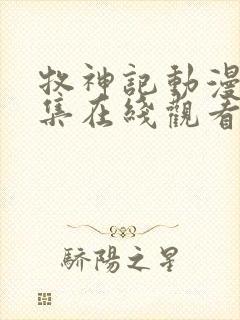 牧神記動漫
集在綫觀看
驕陽之星